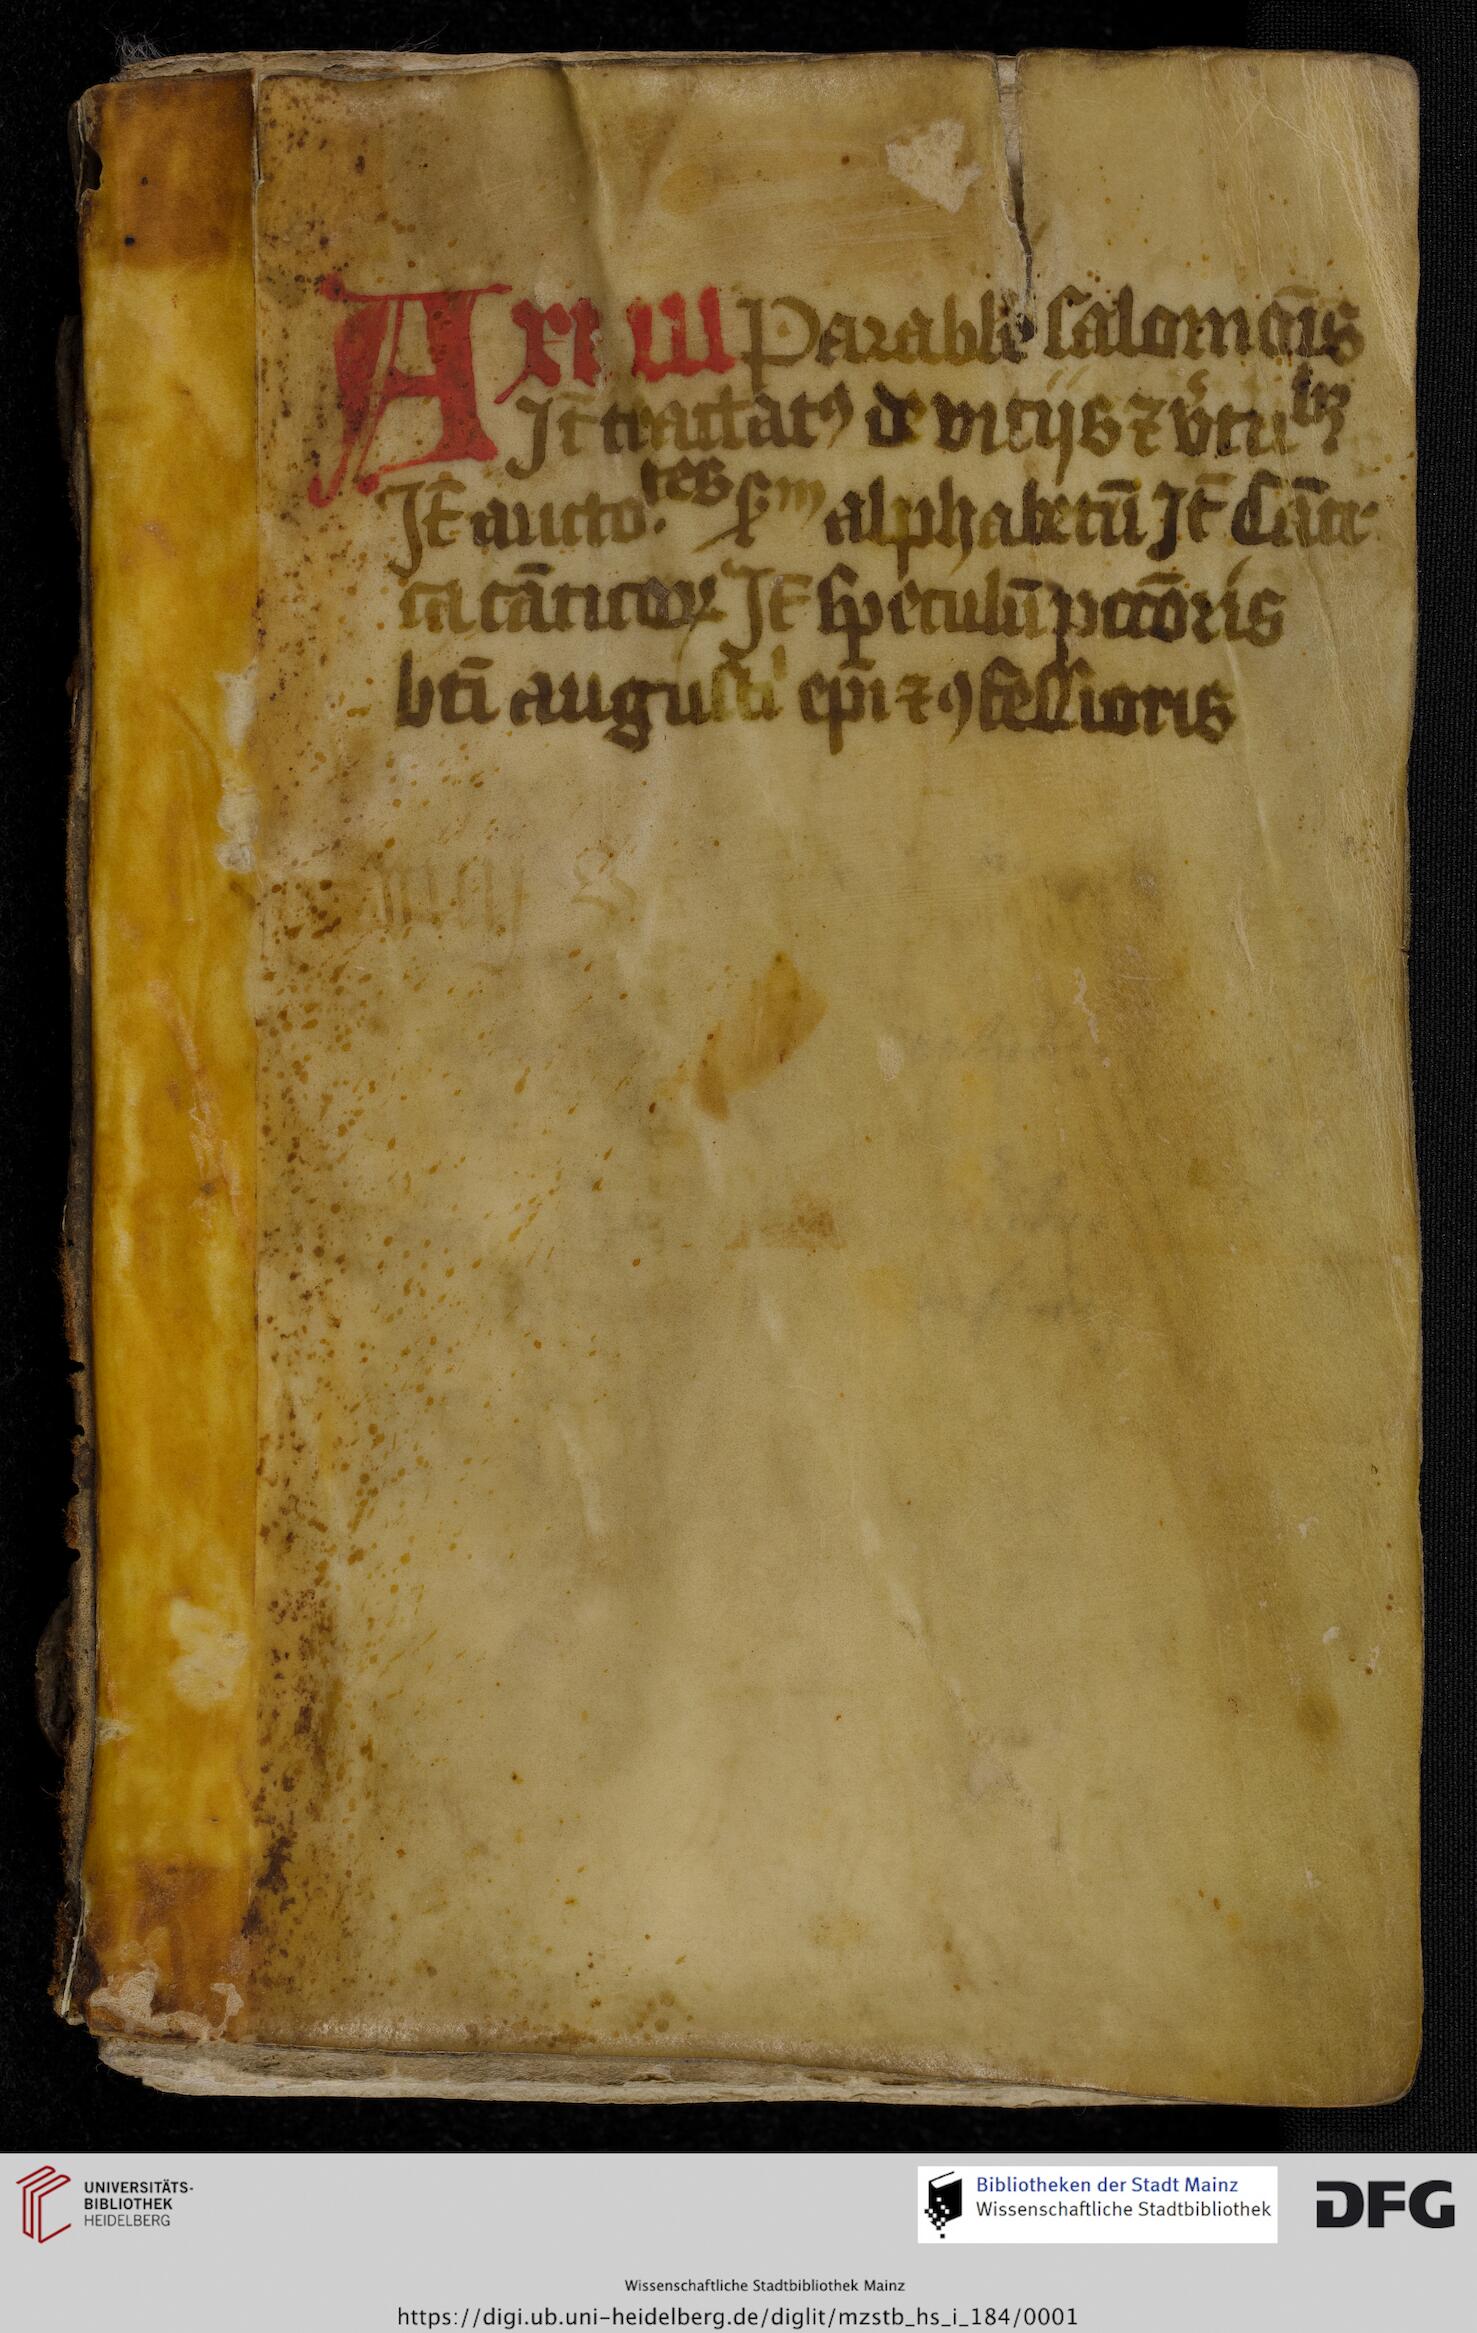 A xi iii Parabl'e Salomōīs
Jt̄ tractatꝰ de vicijs ⁊ v̓tutibꝫ
Jt̄ aucto.tes ẜm alphabetū Jt̄ Cāti
ca cāticoꝝ Jt̄ speculū pctōris
bti̅ augusti̅ ep̄i ⁊ ꝯfessioris
UNIVERSITÄTS-
BIBLIOTHEK
HEIDELBERG
Bibliotheken der Stadt Mainz
Wissenschaftliche Stadtbibliothek
DFG
Wissenschaftliche Stadtbibliothek Mainz
https://digi.ub.uni-heidelberg.de/diglit/mzstb_hs_i_184/0001